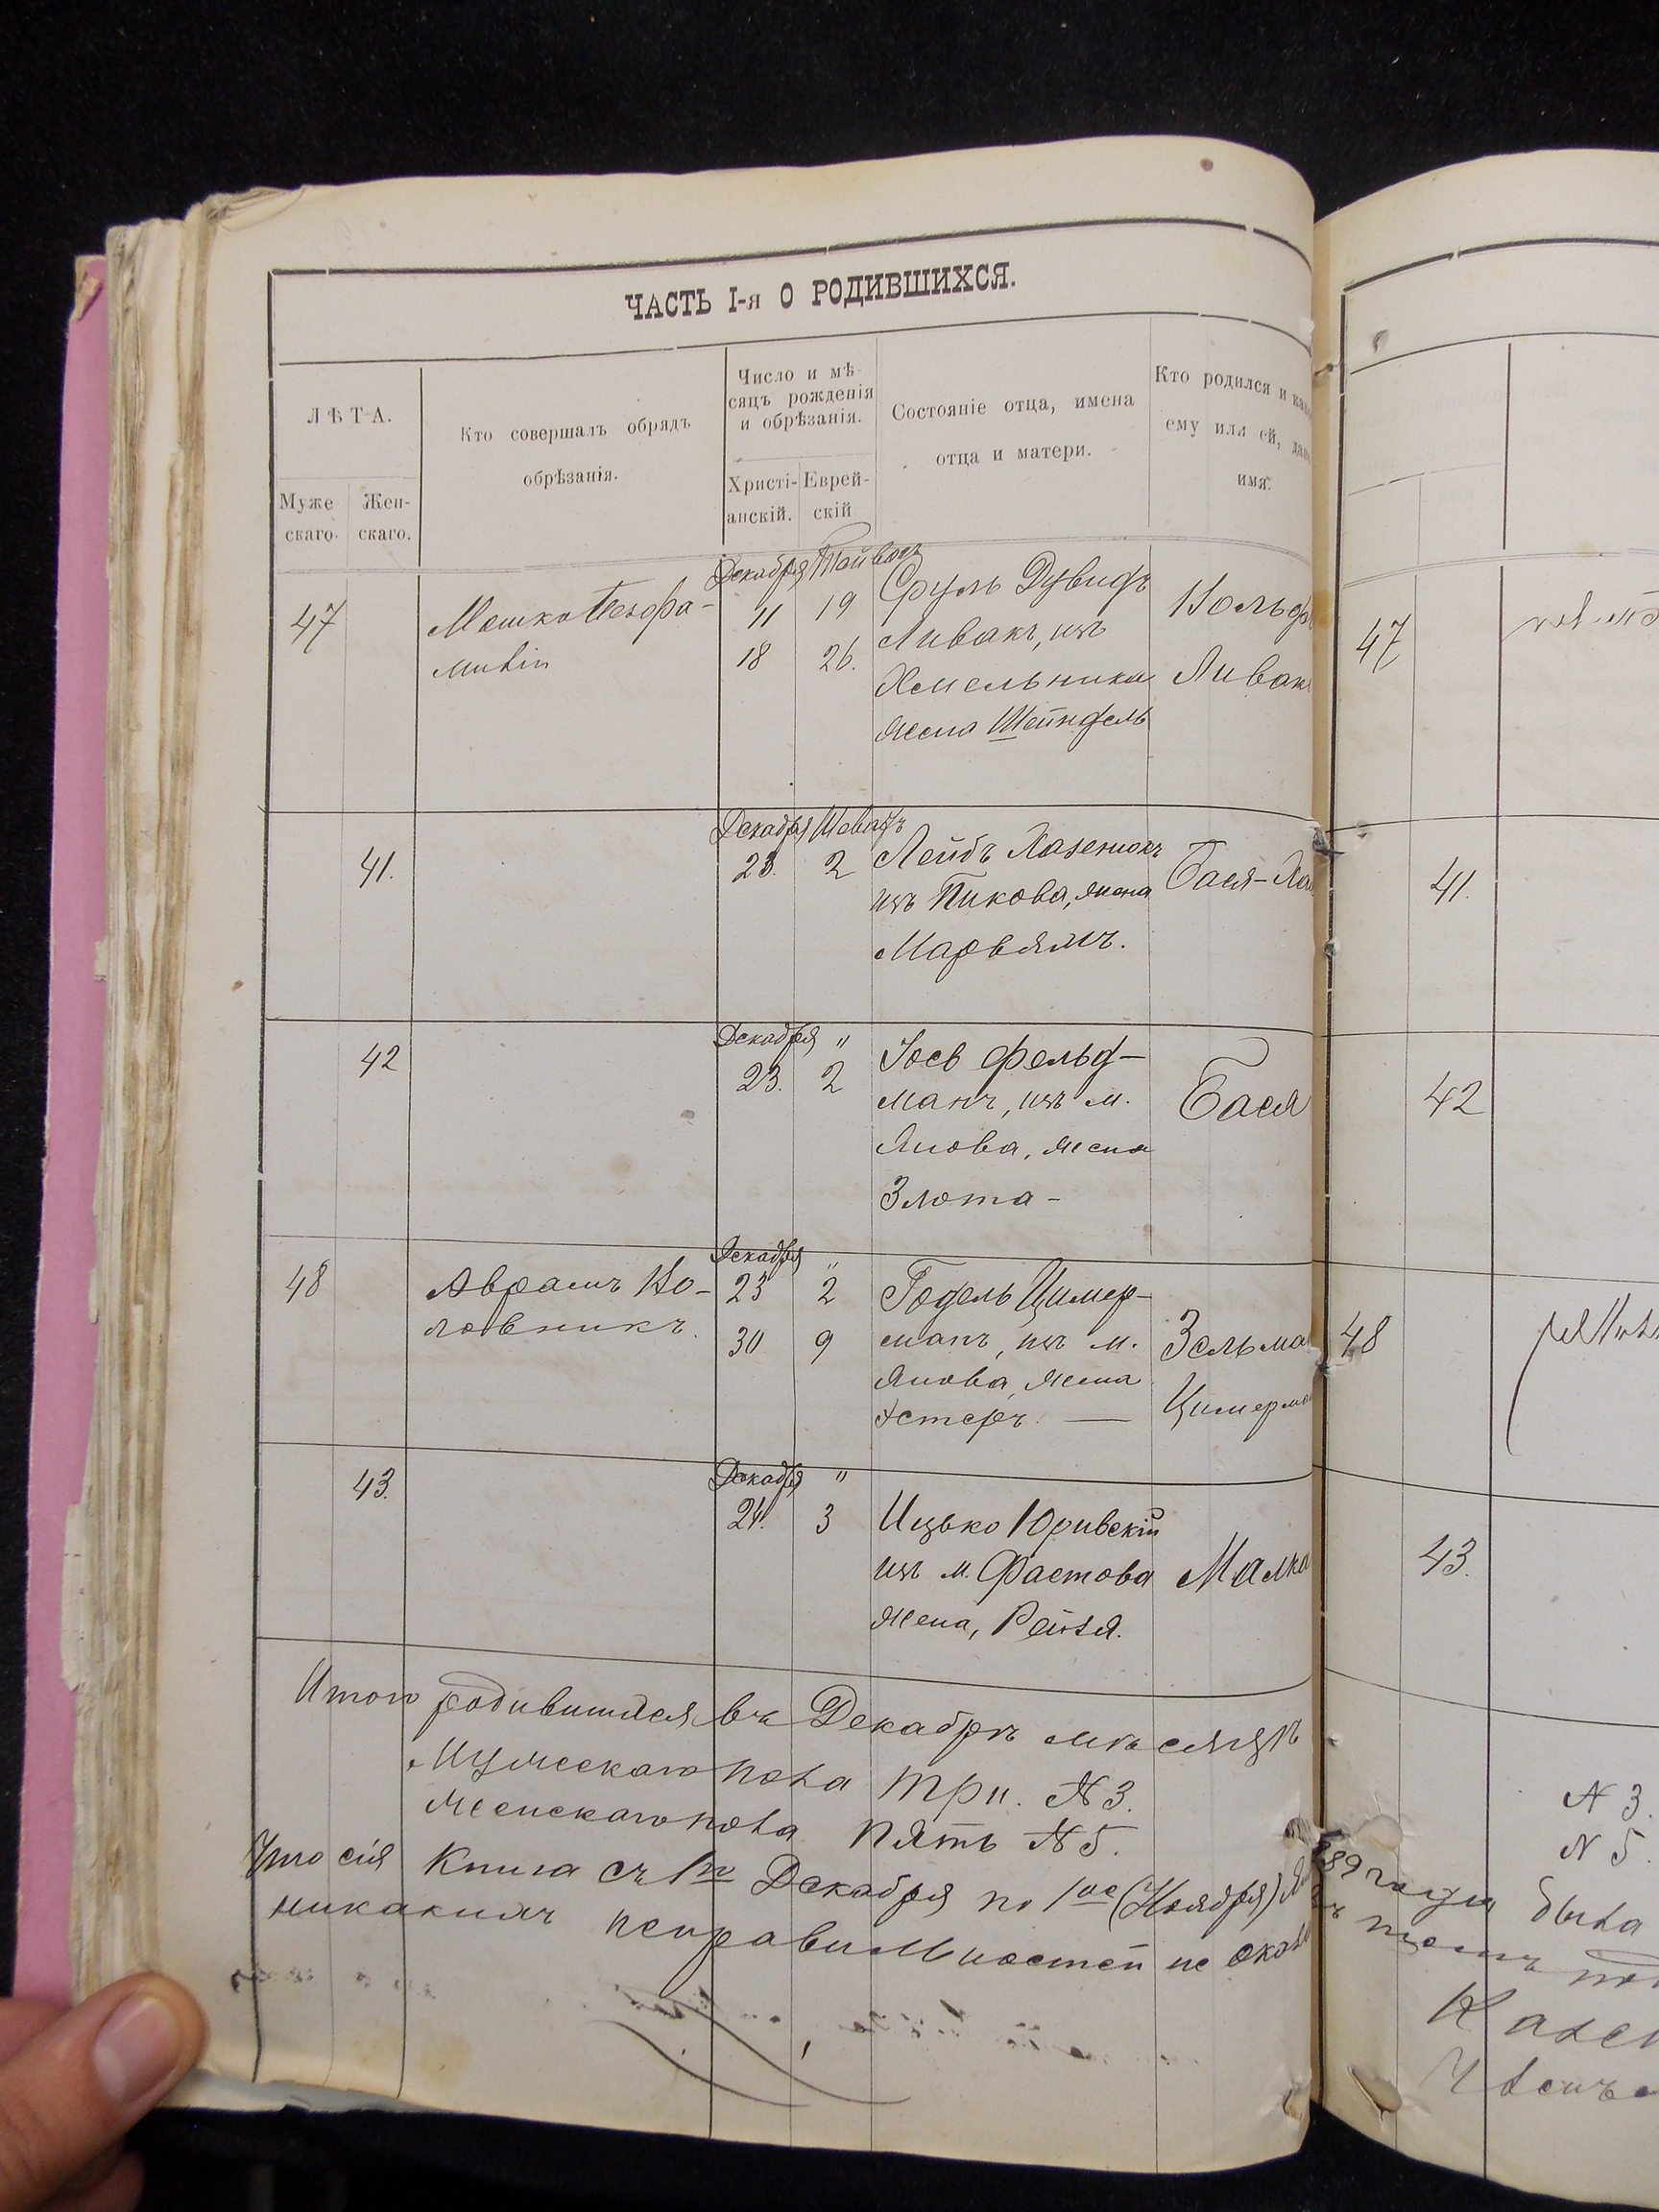 ЧАСТЬ I-я О РОДИВШИХСЯ.
ЛѢТА.
Муже
скаго.
Жен-
скаго.
Кто совершалъ обрядъ
обрѣзанія.
Число и мѣ-
сяцъ рожденія
и обрѣзанія.
Христі-
анскій.
Еврей-
скій
Состояніе отца, имена
отца и матери.
Кто родился и как
ему или ей, дан
имя.
47
Мошко
Декабря
11 19
18 26.
Сруль Дувидъ
Ливакъ, изъ
Хмельника
жена Шейндель
Вольф
Ливак
47
41.
Декабря Шеватъ
23. 2
Лейбъ Хазенюкъ
изъ Пикова, жена
Марьямъ.
Бася-Ха
41.
42
Декабря "
23. 2
Іосъ Фельд-
манъ, изъ м.
Янова, жена
Злота-
Бася
42
48
Аврамъ Во-
ловникъ.
Декабря "
23 2
30 9
Годель Цимер-
манъ, изъ м.
Янова, жена
Эстеръ. —
Зельма
Цимерма
48
43.
Декабря "
24. 3
Ицько Юривскій
изъ м. Фастова
жена, Рейзя.
Малка
43.
Итого родившихся въ Декабрѣ мѣсяцѣ
Мужескаго пола три. N 3.
Женскаго пола пять N 5.
N 3.
N 5.
Что сія Книга съ 1го Декабря по 1ое (Ноября)
89 года была
никакихъ неправильностей не оказа
въ томъ